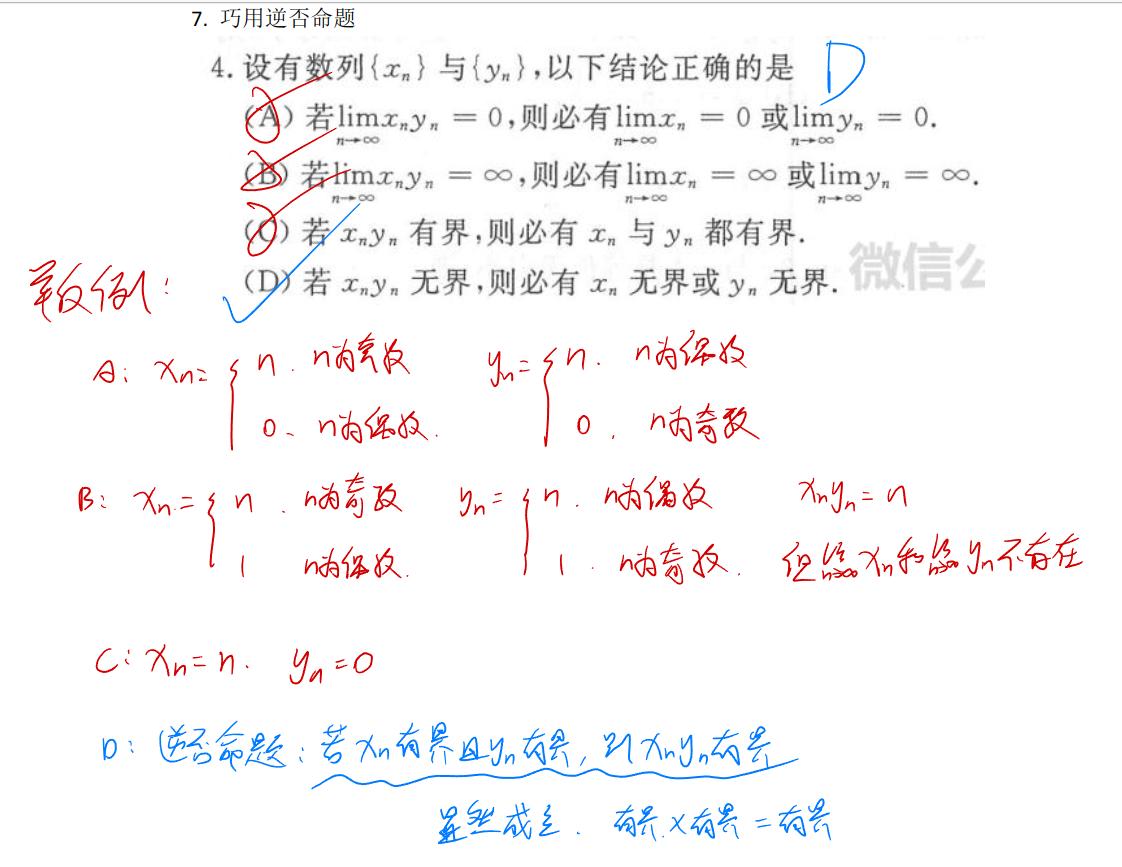 7. 巧用逆否命题
4. 设有数列{xₙ}与{yₙ},以下结论正确的是 D
(A) 若lim xₙyₙ = 0,则必有lim xₙ = 0 或lim yₙ = 0.
n→∞ n→∞ n→∞
(B) 若lim xₙyₙ = ∞,则必有lim xₙ = ∞ 或lim yₙ = ∞.
n→∞ n→∞ n→∞
(C) 若 xₙyₙ 有界,则必有 xₙ 与 yₙ 都有界.
(D) 若 xₙyₙ 无界,则必有 xₙ 无界或 yₙ 无界.
微信公
举反例:
A: xₙ= { n. n为奇数 yₙ= { n. n为偶数
0、n为偶数. 0, n为奇数
B: xₙ= { n. n为奇数 yₙ= { n. n为偶数 xₙyₙ = n
1 n为偶数. 1. n为奇数. 但lim xₙ和lim yₙ不存在
n→∞ n→∞
C: xₙ= n. yₙ=0
D: 逆否命题: 若xₙ有界且yₙ有界, 则xₙyₙ有界
显然成立. 有界×有界=有界